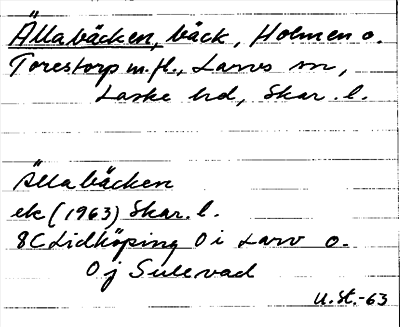 Ällabäcken, bäck, Holmen o.
Torestorp m.fl., Larvs sn,
Laske hd, Skar. l.
Ällabäcken
ek (1963) Skar. l.
8C Lidköping 0 i Larv o.
0 j Sulevad
U.St.-63